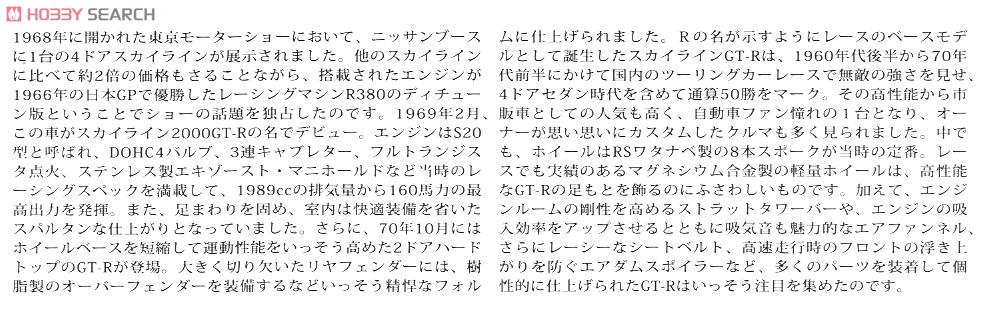 HOBBY SEARCH
1968年に開かれた東京モーターショーにおいて、ニッサンブース
に1台の4ドアスカイラインが展示されました。他のスカイライン
に比べて約2倍の価格もさることながら、搭載されたエンジンが
1966年の日本GPで優勝したレーシングマシンR380のディチュー
ン版ということでショーの話題を独占したのです。1969年2月、
この車がスカイライン2000GT-Rの名でデビュー。エンジンはS20
型と呼ばれ、DOHC4バルブ、3連キャブレター、フルトランジス
タ点火、ステンレス製エキゾースト・マニホールドなど当時のレ
ーシングスペックを満載して、1989ccの排気量から160馬力の最
高出力を発揮。また、足まわりを固め、室内は快適装備を省いた
スパルタンな仕上がりとなっていました。さらに、70年10月には
ホイールベースを短縮して運動性能をいっそう高めた2ドアハード
トップのGT-Rが登場。大きく切り欠いたリヤフェンダーには、樹
脂製のオーバーフェンダーを装備するなどいっそう精悍なフォル
ムに仕上げられました。Rの名が示すようにレースのベースモデ
ルとして誕生したスカイラインGT-Rは、1960年代後半から70年
代前半にかけて国内のツーリングカーレースで無敵の強さを見せ、
4ドアセダン時代を含めて通算50勝をマーク。その高性能から市
販車としての人気も高く、自動車ファン憧れの1台となり、オー
ナーが思い思いにカスタムしたクルマも多く見られました。中で
も、ホイールはRSワタナベ製の8本スポークが当時の定番。レー
スでも実績のあるマグネシウム合金製の軽量ホイールは、高性能
なGT-Rの足もとを飾るのにふさわしいものです。加えて、エンジ
ンルームの剛性を高めるストラットタワーバーや、エンジンの吸
入効率をアップさせるとともに吸気音も魅力的なエアファンネル、
さらにレーシーなシートベルト、高速走行時のフロントの浮き上
がりを防ぐエアダムスポイラーなど、多くのパーツを装着して個
性的に仕上げられたGT-Rはいっそう注目を集めたのです。